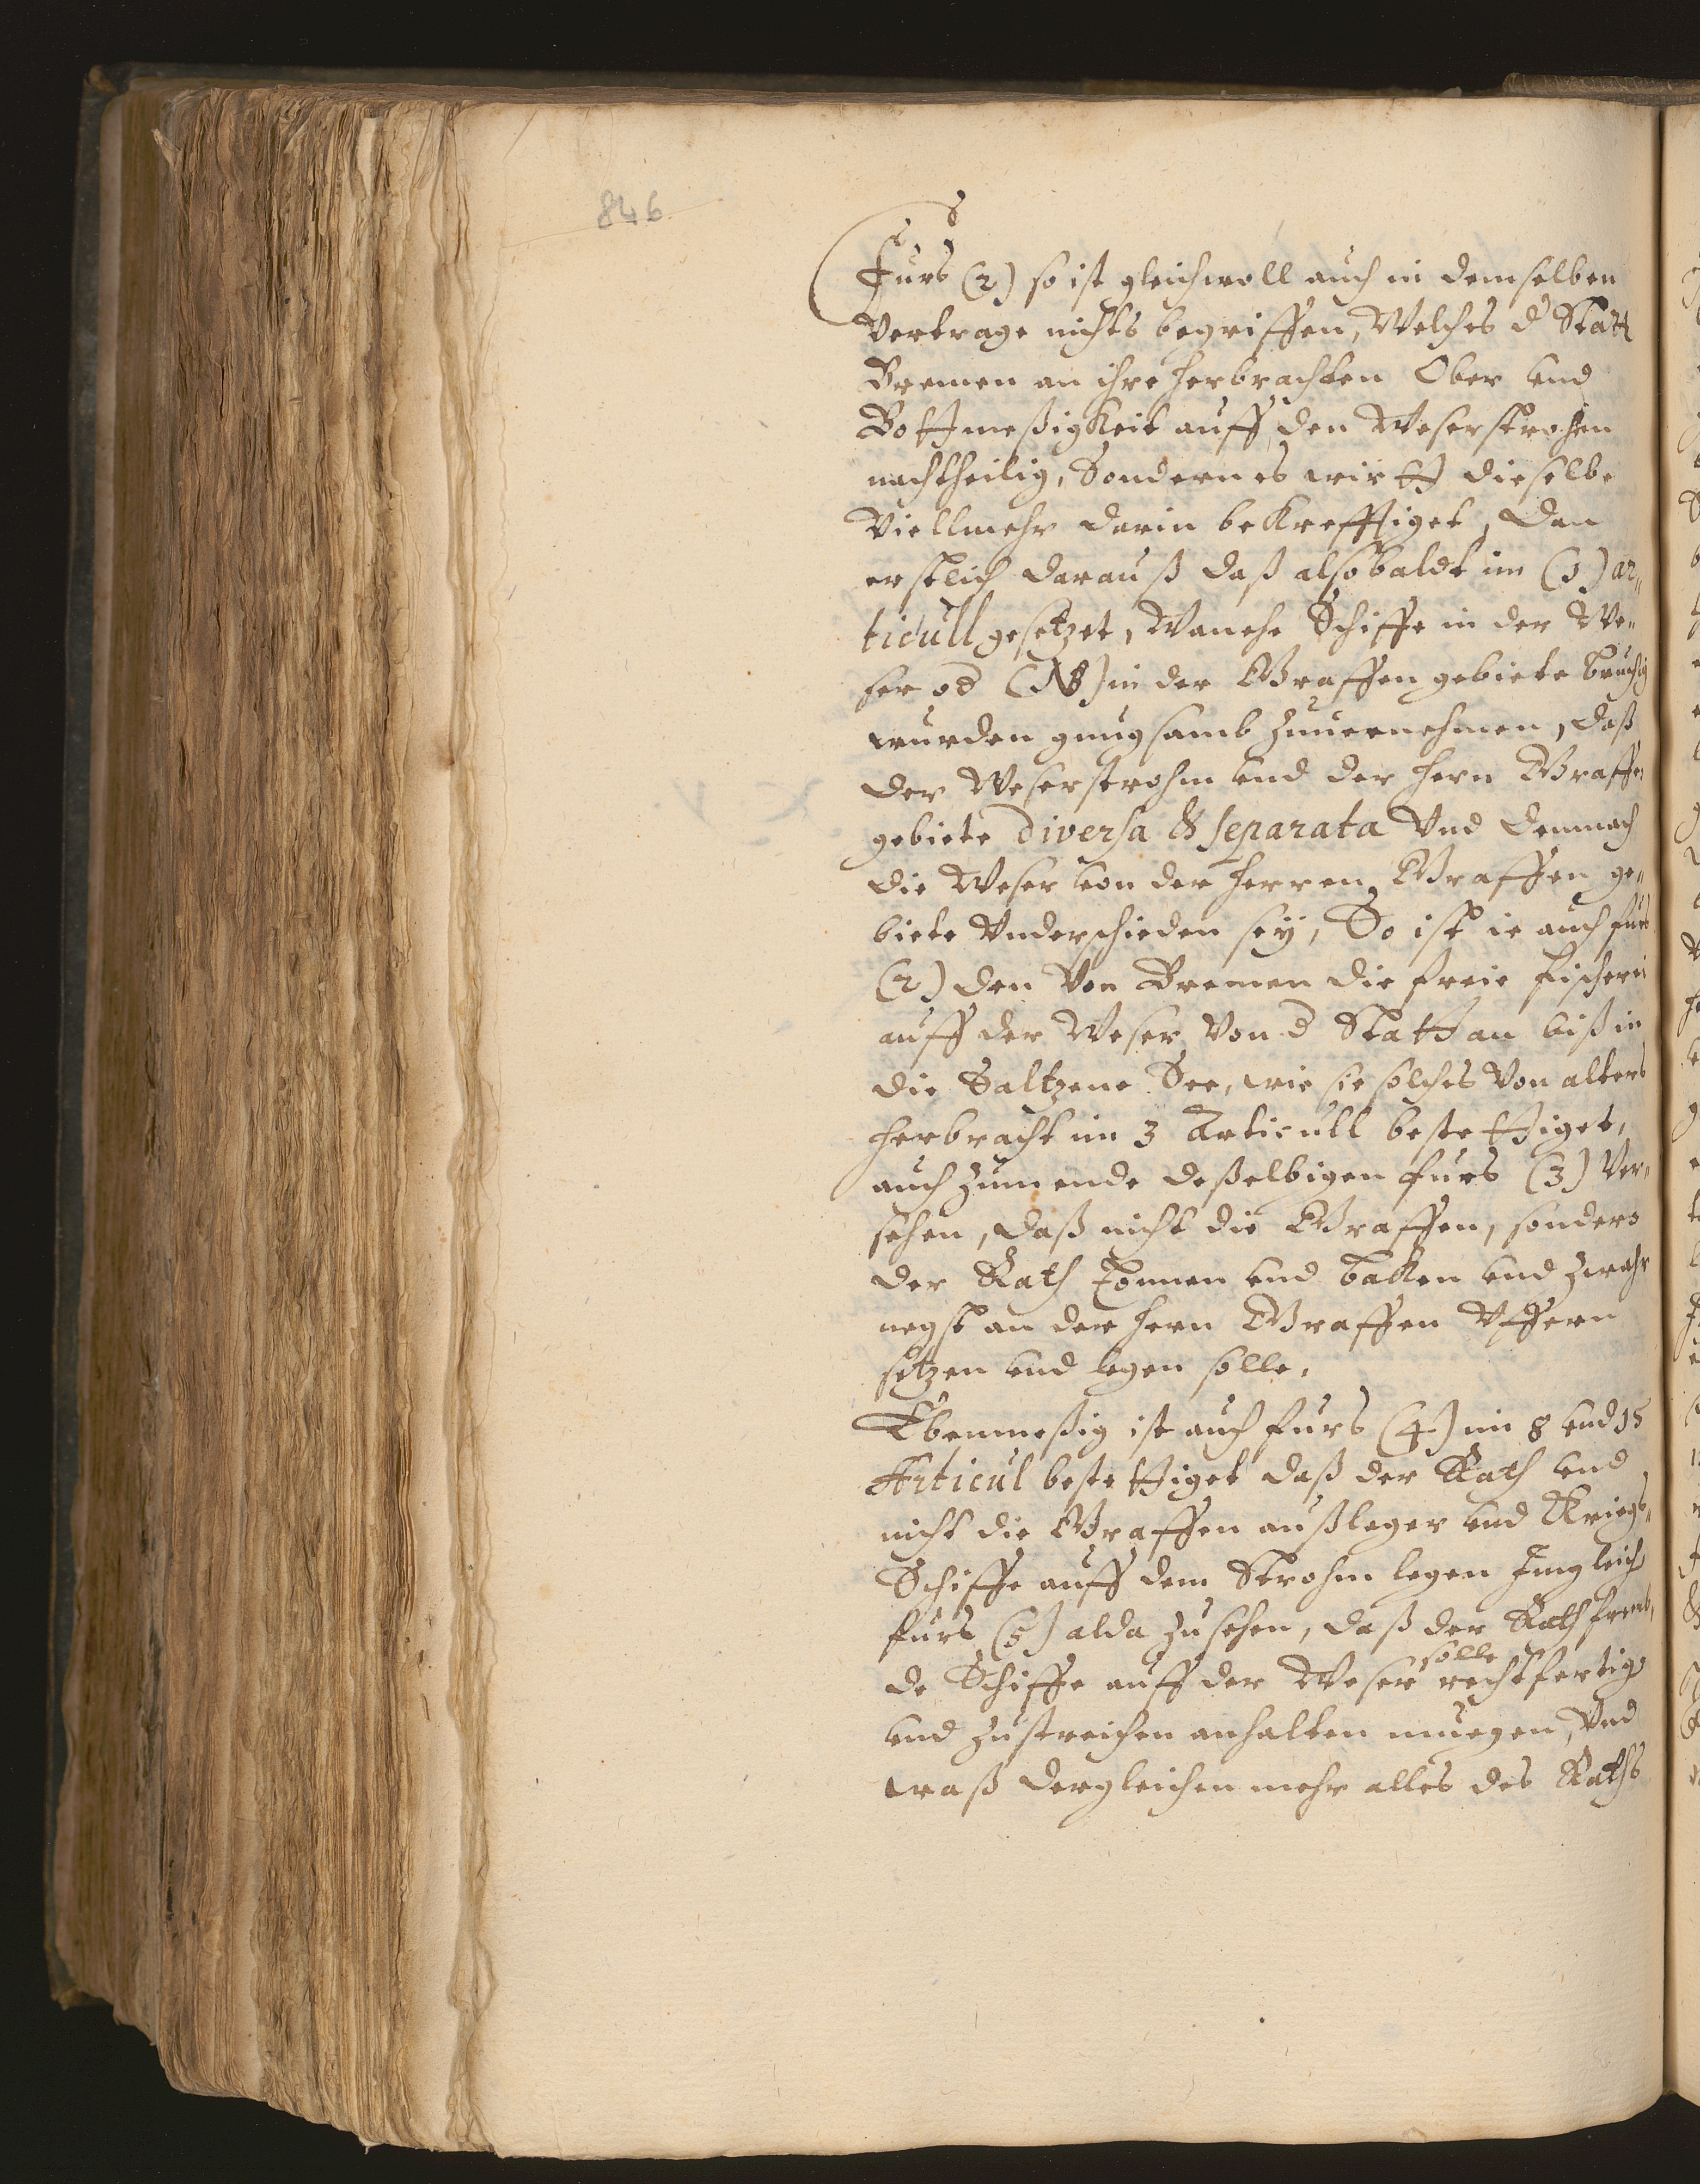 846
Furs (2) so ist gleichwoll auch in demselben
Vertrage nichts begriffen, Welches d Statt
Bremen an ihre herbrachten Ober und
Bottmeßigkeit auff den Weserstrohm
nachtheilig, Sondern es wirtt dieselbe
Viellmehr darin bekrefftiget, Dan
erstlich darauß daß alsobaldt im (1) ar„
ticull gesetzet, Wan ehe Schiffe in der We„
ser od (NB) in der Graffen gebiete bruchig
wurden gnugsamb zuuernehmen, daß
der Weserstrohm und der hern Graffen
gebiete diversa & separata Vnd demnach
die Weser von der herren Graffen ge„
biete Underschieden sey, So ist ie auch furs
(2) den Von Bremen die freie fischerei
auff der Weser Von d Statt an biß in
die Saltzene See, wie sie solches Von alters
herbracht im 3 Articull bestettiget,
auch zum ende deßelbigen furs (3) Ver„
sehen, daß nicht die Graffen, sonders
der Rath Tonnen und baken und zwahr
negst an der hern Graffen Vffern
setzen und legen solle.
Ebenmeßig ist auch furs (4) im 8 und 15
Articul bestettiget daß der Rath und
nicht die Graffen außleger und Kriegs„
Schiffe auff dem Strohm legen Jmgleich
furs (5) alda zu sehen, daß der Rath fremb„
de Schiffe auff der Weser solle rechtfertig
und zustreichen anhalten muegen, Vnd
waß dergleichen mehr alles des Raths